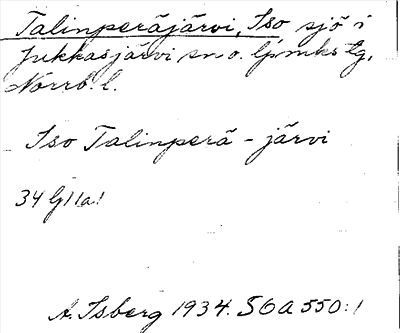 Talinperäjärvi, Iso sjö i
Jukkasjärvi sn o. lpmks tg,
Norrb. l.
Iso Talinperä - järvi
34 G11a1
A. Isberg 1934. S6a 550:1